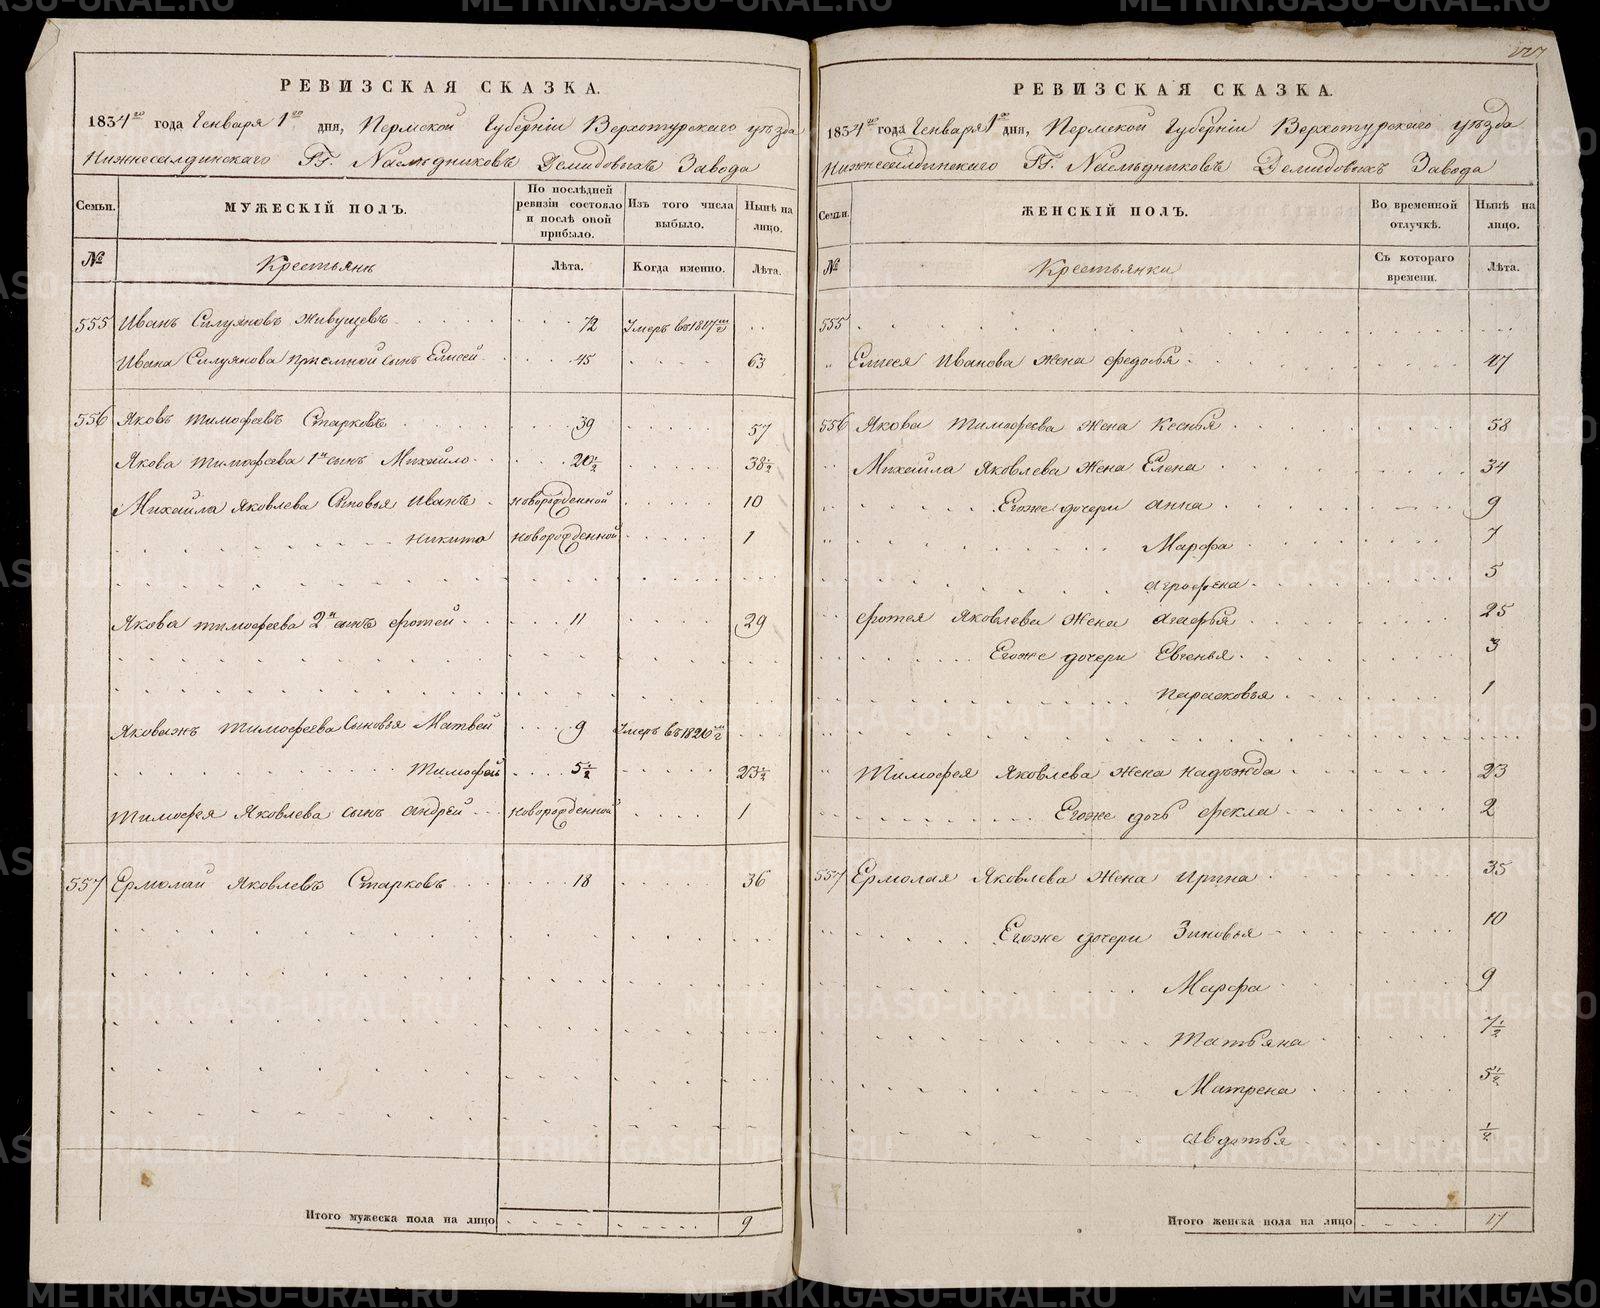 РЕВИЗСКАЯ СКАЗКА.
1834го года Генваря 1го дня, Пермской Губернiи Верхотурскаго уѣзда
Нижнесалдинскаго ГГ. Наслѣдниковъ Демидовыхъ Завода
Семьи.
МУЖЕСКIЙ ПОЛЪ.
По послѣдней ревизiи состояло и послѣ оной прибыло.
Изъ того числа выбыло.
Нынѣ на лицо.
№
Крестьянъ
Лѣта.
Когда именно.
Лѣта.
555 Иванъ Силуяновъ Живущевъ 72 Умеръ въ 1817мъ г.
Ивана Силуянова прiемной сынъ Елисей 45 63
556 Яковъ Тимофеевъ Старковъ 39 57
Якова Тимофеева 1й сынъ Михайло 20½ 38½
Михайла Яковлева Сыновья Иванъ новорожденной 10
Никита новорожденной 1
Якова Тимофеева 2й сынъ Фотей 11 29
Яковажъ Тимофеева Сыновья Матвей 9 Умеръ въ 1826мъ г
Тимофей 5½ 23½
Тимофея Яковлева сынъ Андрей новорожденной 1
557 Ермолай Яковлевъ Старковъ 18 36
Итого мужеска пола на лицо 9
227
РЕВИЗСКАЯ СКАЗКА.
1834го года Генваря 1го дня, Пермской Губернiи Верхотурскаго уѣзда
Нижнесалдинскаго ГГ. Наслѣдниковъ Демидовыхъ Завода
Семьи.
ЖЕНСКIЙ ПОЛЪ.
Во временной отлучкѣ.
Нынѣ на лицо.
№
Крестьянки
Съ котораго времени.
Лѣта.
555
Елисея Иванова жена Федосья 47
556 Якова Тимофеева жена Ксенья 58
Михайла Яковлева жена Елена 34
Егоже дочери Анна 9
Марфа 7
Агрофена 5
Фотея Яковлева жена Агафья 25
Егоже дочери Евгенья 3
Парасковья 1
Тимофея Яковлева жена Надѣжда 23
Егоже дочь Фекла 2
557 Ермолая Яковлева жена Ирина 35
Егоже дочери Зиновья 10
Марфа 9
Татьяна 7½
Матрена 5½
Авдотья ½
Итого женска пола на лицо 17
METRIKI.GASO-URAL.RU